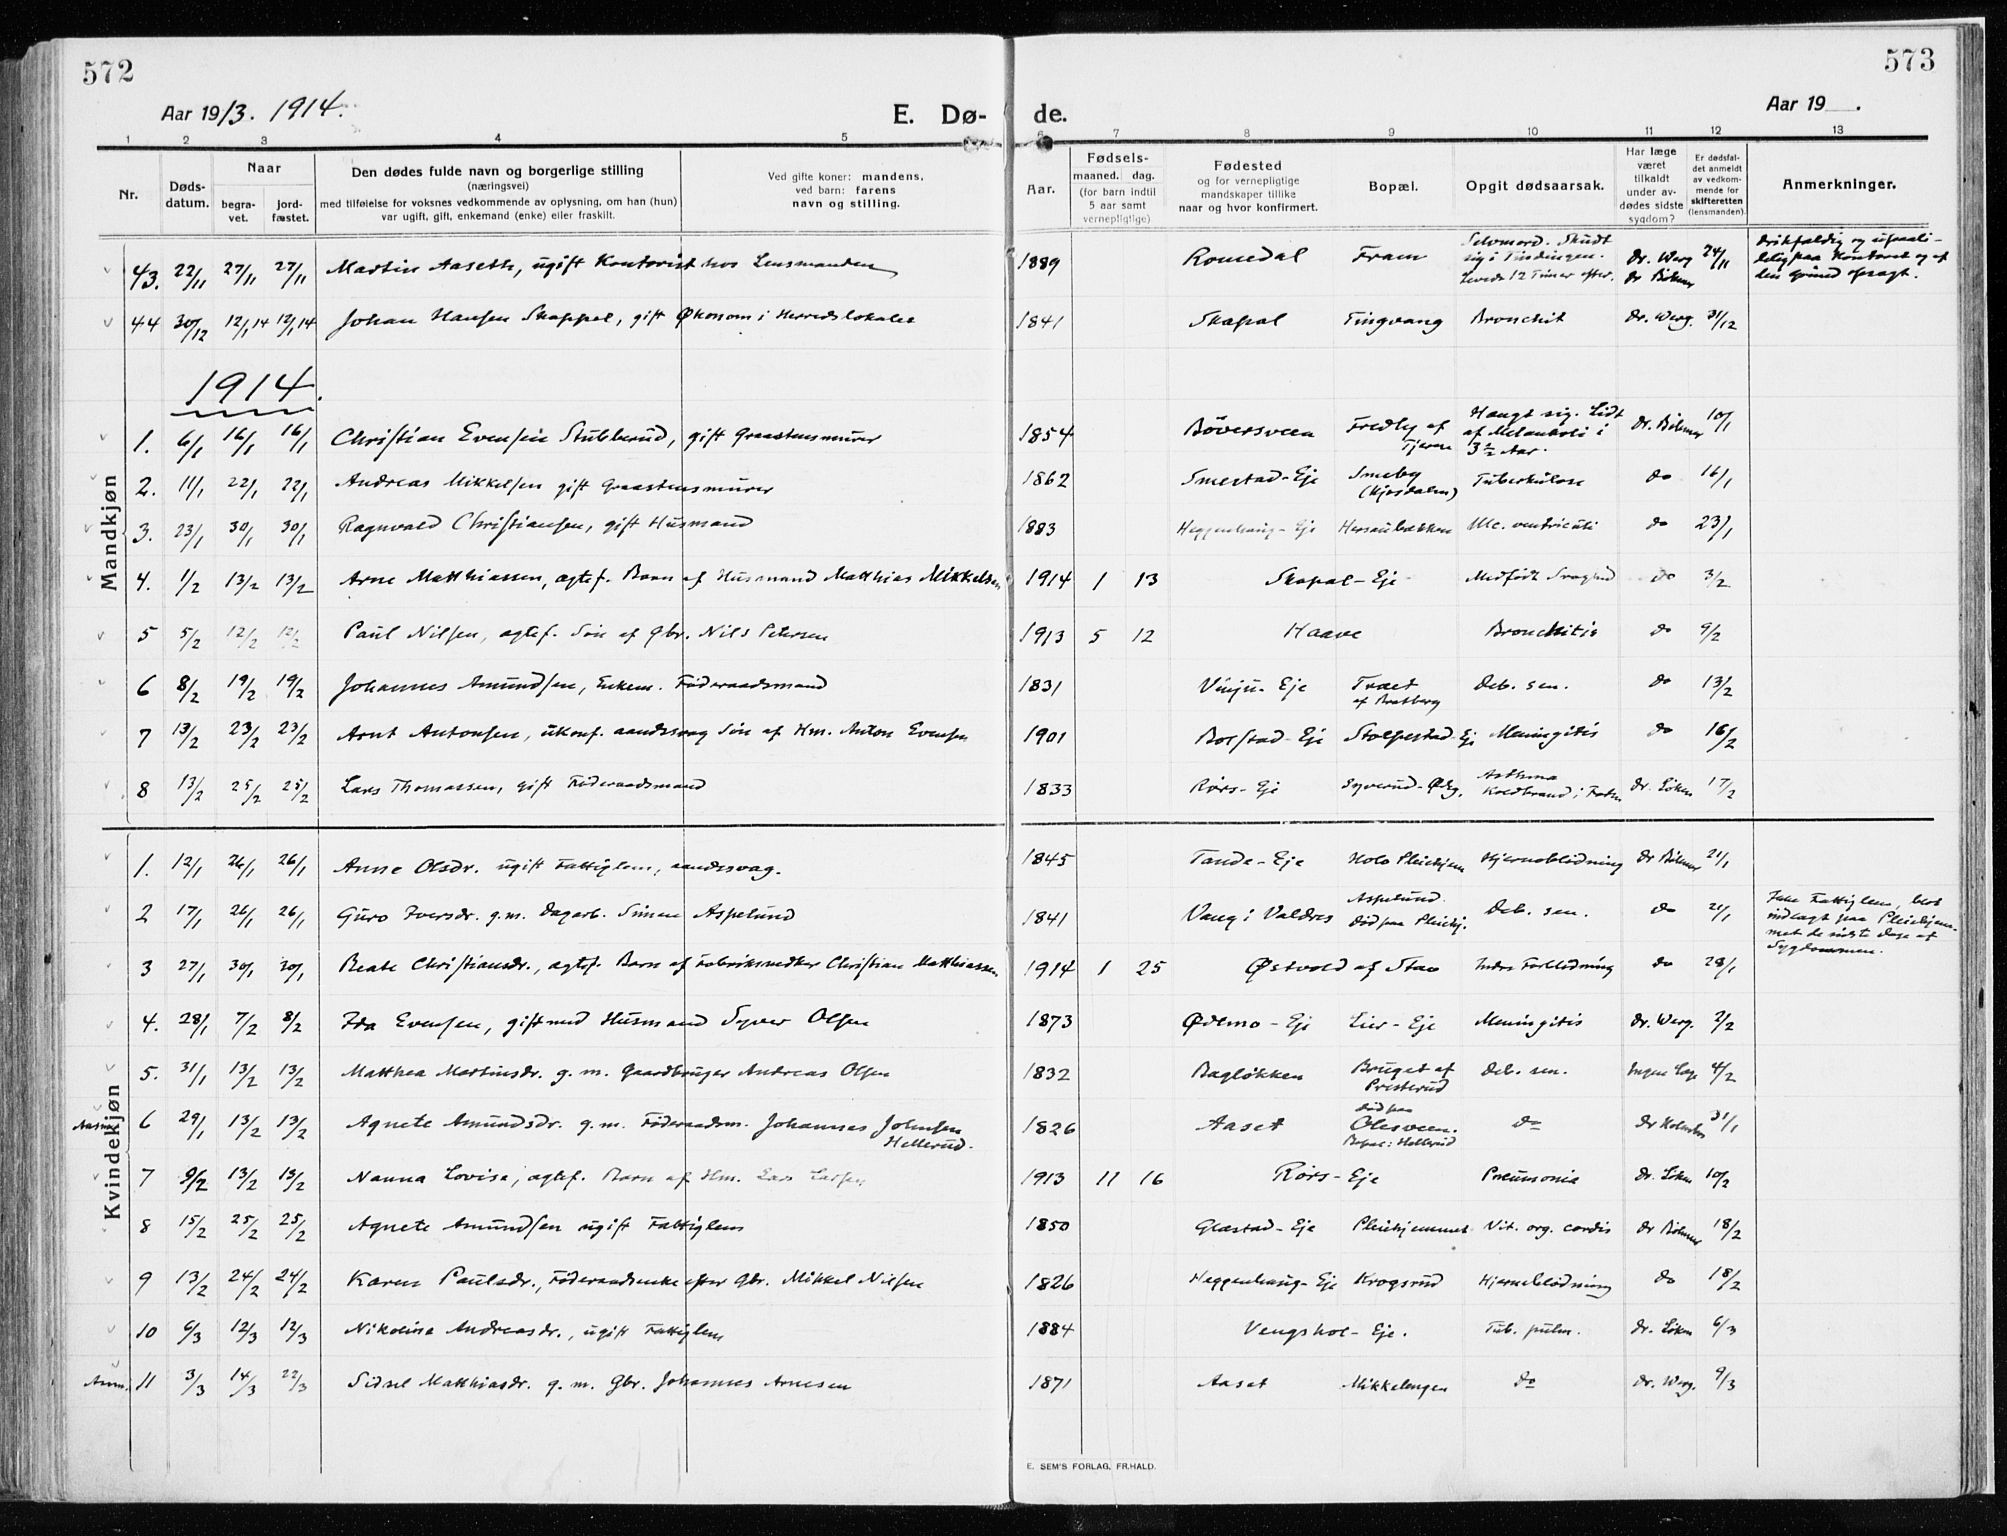 572
573
Aar 1913. 1914.
E. Dø-
de.
Aar 19 .
1 2 3 4 5 6 7 8 9 10 11 12 13
Nr.
Døds-
datum.
Naar
begra-
vet.
jord-
fæstet.
Den dødes fulde navn og borgerlige stilling
(næringsvei)
med tilføielse for voksnes vedkommende av oplysning, om han (hun)
var ugift, gift, enkemand (enke) eller fraskilt.
Ved gifte koner: mandens,
ved barn: farens
navn og stilling.
Aar.
Fødsels-
maaned. dag.
(for barn indtil
5 aar samt
vernepligtige)
Fødested
og for vernepligtige
mandskaper tillike
naar og hvor konfirmert.
Bopæl.
Opgit dødsaarsak.
Har læge
været
tilkaldt
under av-
dødes sidste
sygdom?
Er dødsfal-
det anmeldt
av vedkom-
mende for
skifteretten
(lensmanden).
Anmerkninger.
43. 22/11 27/11 27/11 Martin Aaseth, ugift Kontorist hos Lensmanden 1889 Romedal Fram Selvmord. Skudt sig i Tindingen. Levede 12 Timer efter. Dr. Werg Dr Böhmer 24/11 Drikfældig og upaalidelig paa Kontoret og af den Grund opsagt.
44 30/12 12/1 14 12/1 14 Johan Hansen Skappel, gift Økonom i Herredslokalet 1841 Skapal Tingvang Bronchit Dr. Werg. 31/12
1914.
Mandkjøn
1. 6/1 16/1 16/1 Christian Evensen Stubberud, gift Graastensmurer 1854 Böversveen Fredly af Tjerne Hængt sig. Lidt af Melankoli i 3 1/2 Aar. Dr. Böhmer 10/1
2. 11/1 22/1 22/1 Andreas Mikkelsen gift Graastensmurer 1862 Smestad-Eje Smeby (Kjosdalen) Tuberkulose do 16/1
3. 23/1 30/1 30/1 Ragnvald Christiansen, gift Husmand 1883 Heggenhaug-Eje Hersaubækken Ulc. ventriculi do 23/1
4. 1/2 13/2 13/2 Arne Matthiassen, ægtef. Barn af Husmand Matthias Mikkelsen 1914 1 13 Skapal-Eje Medfödt Svaghed do 3/2
5 5/2 12/2 12/2 Paul Nilsen, ægtef. Sön af Gbr. Nils Petersen 1913 5 12 Haave Bronchitis do 9/2
6 8/2 19/2 19/2 Johannes Amundsen, Enkem. Föderaadsmand 1831 Vinju-Eje Træet af Bratberg Deb. sen. do 13/2
7 13/2 23/2 23/2 Arnt Antonsen, ukonf. aandssvag Sön af Hm. Anton Evensen 1901 Borstad-Eje Stolpestad-Ej Meningitis do 16/2
8 13/2 25/2 25/2 Lars Thomassen, gift Föderaadsmand 1833 Rörs-Eje Syverud-Ødeg. Asthma Koldbrand i Foten Dr. Löken 17/2
Kvindekjøn
1. 12/1 26/1 26/1 Anne Olsdr. ugift Fattiglem, aandssvag. 1845 Tande-Eje Holo Pleiehjem Hjerneblödning Dr Böhmer 21/1
2 17/1 26/1 26/1 Guro Iversdr. g.m. Dagarb. Simen Aspelund 1841 Vang i Valdres Aspelund. Död paa Pleiehj. Deb. sen. do 21/1 Ikke Fattiglem, blot indlagt paa Pleiehjemmet de sidste Dage af Sygdommen.
3 27/1 30/1 30/1 Beate Christiansdr., ægtef. Barn af Fabriksnedker Christian Matthiassen 1914 1 25 Østvold af Stav Indre Forblödning do 28/1
4. 28/1 7/2 8/2 Ida Evensen, gift med Husmand Syver Olsen 1873 Ødemo-Eje Lier-Eje Meningitis Dr. Werg. 2/2
5. 31/1 13/2 13/2 Matthea Martinsdr. g.m. Gaardbruger Andreas Olsen 1832 Baglökken Bruget af Presterud Deb. sen. Ingen Læge 4/2
6 29/1 13/2 13/2 Agnete Amundsdr. g.m. Föderaadsm. Johannes Johnsen Hellerud. 1826 Aaset Död paa Olesveen. Bopæl: Hellerud do 31/1
7 9/2 13/2 13/2 Nanna Lovise, ægtef. Barn af Hm. Lars Larsen 1913 11 16 Rörs-Eje Pneumonia Dr. Löken 10/2
8 15/2 25/2 25/2 Agnete Amundsen ugift Fattiglem 1850 Glæstad-Eje Pleiehjemmet Vit. org. cordis Dr Böhmer 18/2
9 13/2 24/2 24/2 Karen Paulsdr., Föderaadsenke efter Gbr. Mikkel Nilsen 1826 Heggenhaug-Eje Krogsrud Hjerneblödning do 18/2
10 6/3 12/3 12/3 Nikoline Andreasdr., ugift Fattiglem 1884 Vengshol-Eje. Tub. pulm. Dr. Löken 6/3
11 3/3 14/3 22/3 Sidsel Matthiasdr. g.m. Gbr. Johannes Arnesen 1871 Aaset Mikkelengen do Dr. Werg. 9/3
E. SEM'S FORLAG, FR.HALD.